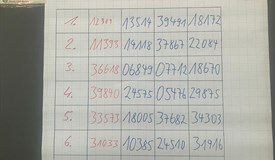 1. 13514 39491 18172
2. 11395 14118 37867 22084
3. 36618 06849 07712 18670
4. 39840 24575 05476 29875
5. 33573 18005 37682 34303
6. 31033 10385 24310 31916